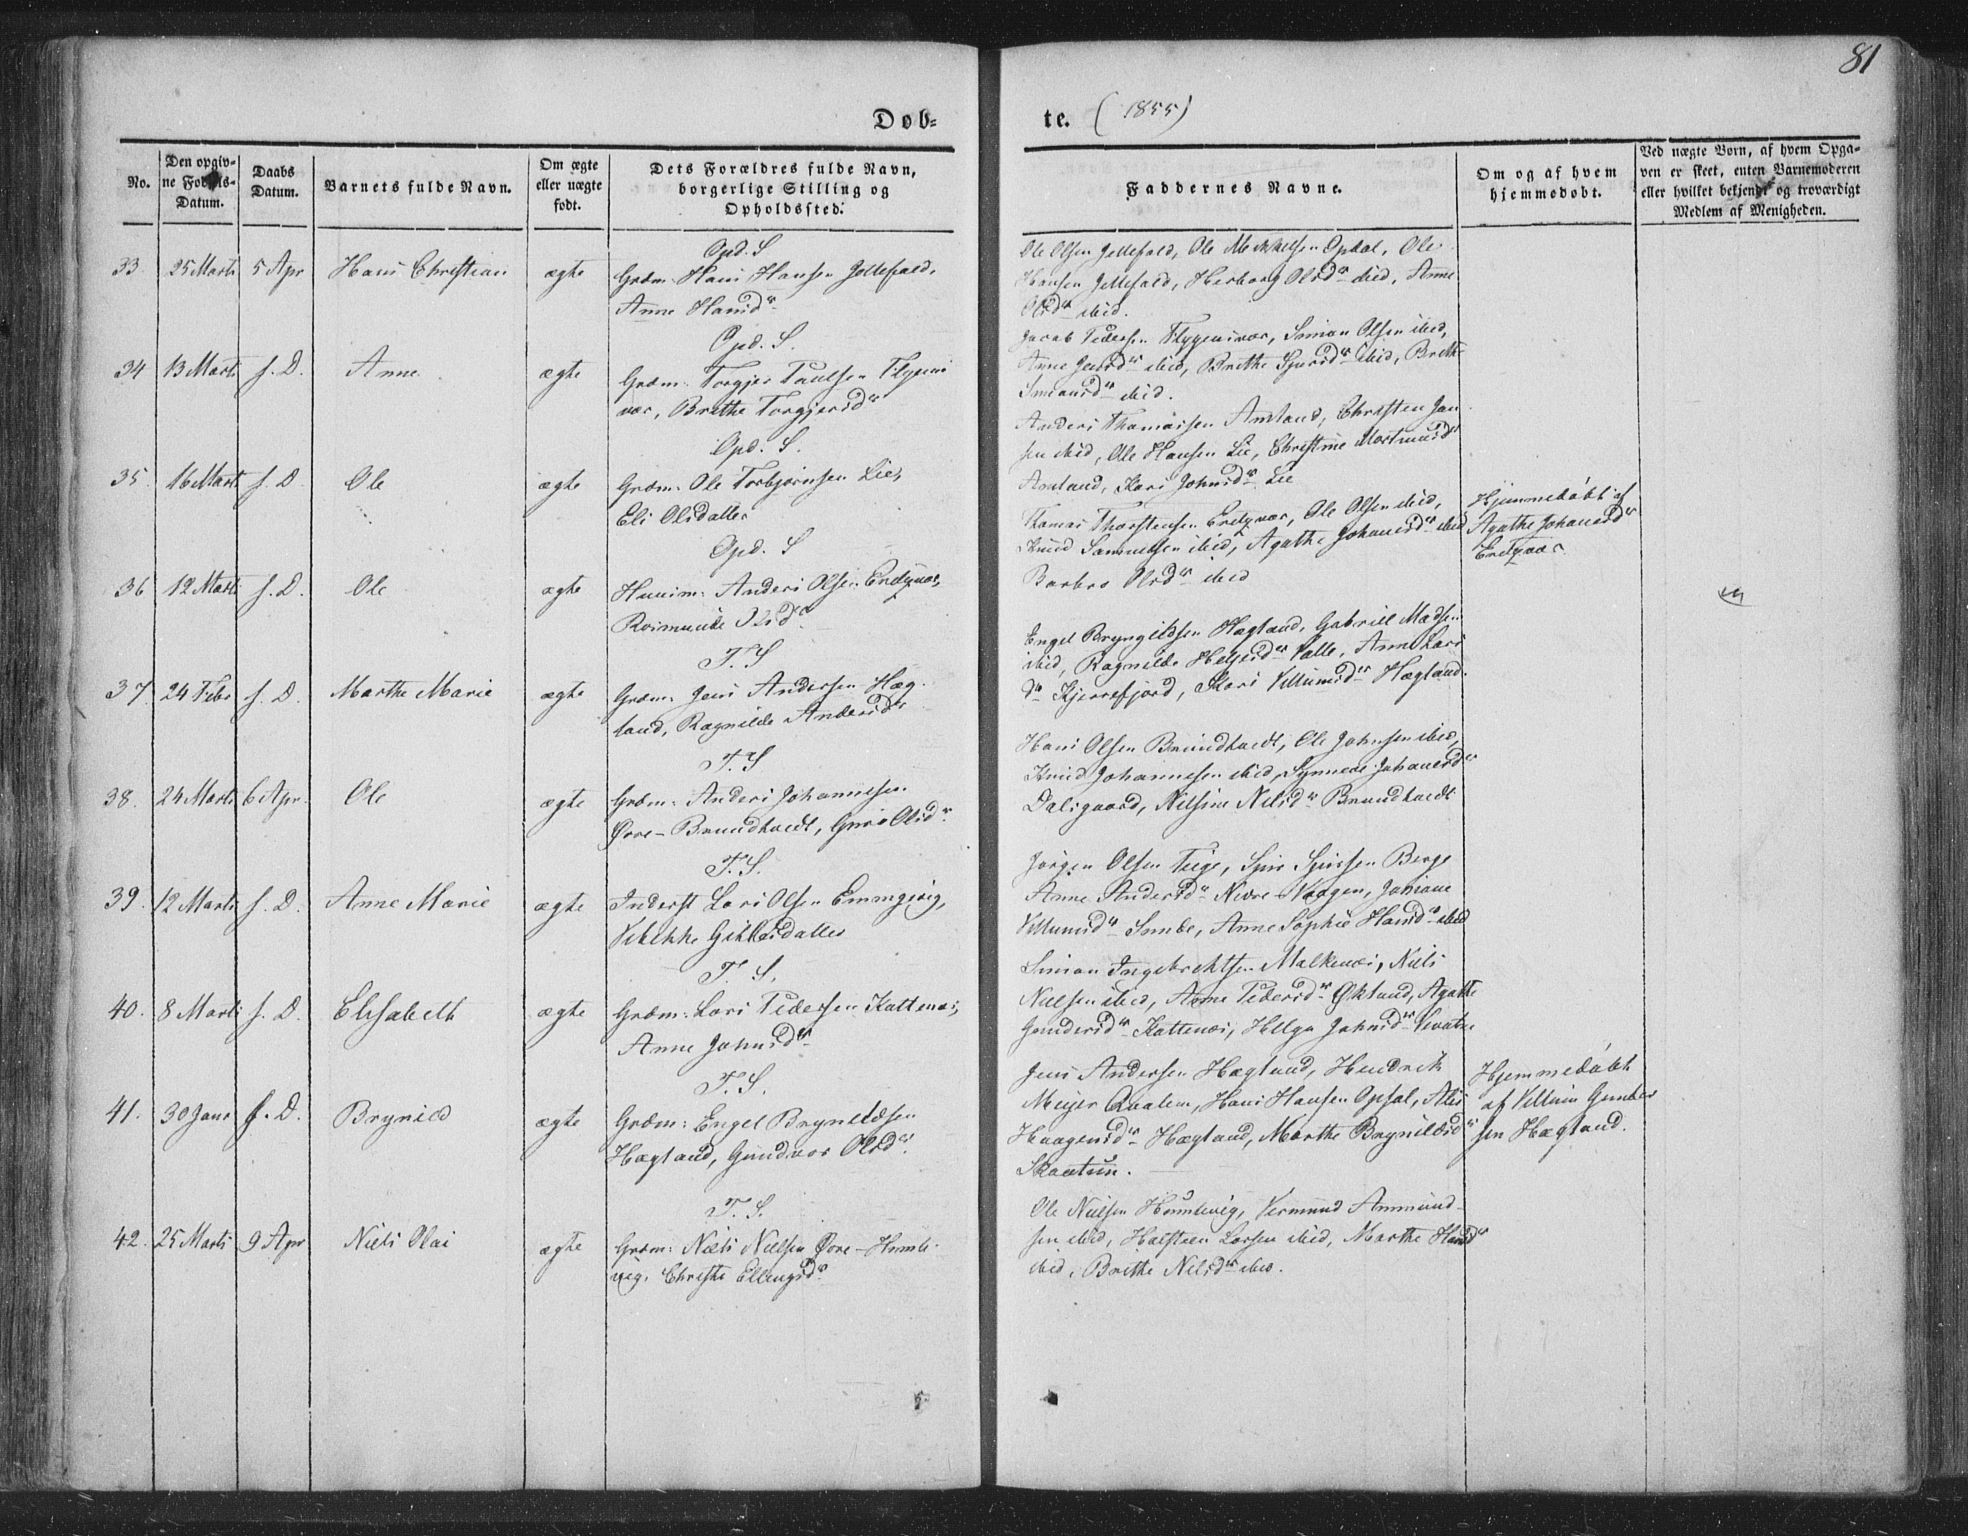 81
Døb-
te. (1855)
No.
Den opgiv-
ne Fødsels-
Datum.
Daabs
Datum.
Barnets fulde Navn.
Om ægte
eller uægte
født.
Dets Forældres fulde Navn,
borgerlige Stilling og
Opholdssted.
Faddernes Navne.
Om og af hvem
hjemmedøbt.
Ved uægte Børn, af hvem Opga-
ven er skeet, enten Barnemoderen
eller hvilket bekjendt og troværdigt
Medlem af Menigheden.
Opd. S
33 25 Marts 5 Apr Hans Christian ægte Grdm. Hans Hansen
Anne Hansdr
Ole Olsen, Ole Mikkelsen Opdal, Ole
Hansen, Herborg Olsdr ibid, Anne
Olsdr ibid.
Opd. S.
34 13 Marts s. D. Anne ægte Grdm: Torgjer Paulsen Flygans
vær, Brithe Torgjersdr
Jacob Pedersen Flygansvær, Simon Olsen ibid,
Anne ibid, Brithe Sjursdr ibid, Brithe
Simonsdr ibid.
Opd. S.
35. 16 Marts s. D Ole ægte Grdm: Ole Torbjørnsen Lie,
Eli Olsdatter
Anders Thomassen Amland, Christen Jan
sen ibid, Ole Hansen Lie, Christine
Amland, Kari Johnsdr Lie
Opd. S
36 12 Marts s. D. Ole ægte Huusm: Anders Olsen Eidsvær,
Rosmunde Olsdr
Thomas Thorstensen, Ole Olsen ibid,
Knud Samuelsen ibid, Agathe Johansdr ibid
Barbro Olsdr ibid
Hjemmedøbt af
Agathe Johansdr
T. S
37 24 Febr s. D. Marthe Marie ægte Grdm: Jens Andersen Hæg-
land, Ragnilde Andersdr
Engel Bryngildsen Hægland, Gabriel Madsen
ibid, Ragnilde Helgesdr Valle, Anne Lars
dr Kjerrefjord, Kari Villumsdr Hægland.
T. S
38. 24 Marts 6 Apr. Ole ægte Grdm: Anders Johannesen
Øvre-Brundtvedt, Guro Olsdr
Hans Olsen Brundtvedt, Ole Johnsen ibid,
Knud Johannesen ibid, Synneve Johansdr
Dalsgaard, Nilsine Nilsdr Brundtvedt
T. S.
39. 12 Marts s. D. Anne Marie ægte Inderst Lars Olsen,
Vibekke
Jørgen Olsen Teige, Sjur Sjursen Berge
Anne Andersdr Nedre-Vaagen, Johanne
Villumsdr Simbe, Anne Sophie Hansdr ibid
T. S.
40. 8 Marts s. D. Elisabeth ægte Grdm: Lars Pedersen Kattenæs,
Anne Johnsdr
Simon Ingebrektsen Malkenæs, Niels
Nielsen ibid, Anne Pedersdr Økland, Agathe
Gundersdr Kattenæs, Helga Johnsdr
T. S.
41. 30 Janr s. D. Brynild ægte Grdm: Engel Bryneldsen
Hægland, Gundvor Olsdr
Jens Andersen Hægland, Hendrik
Meijer Qvalen, Hans Hansen Opsal,
Haagensdr Hægland, Marthe Brynildsdr
Skaatun.
Hjemmedøbt
af Villum Gunder
sen Hægland.
T. S.
42. 25 Marts 9 Apr Niels Olai ægte Grdm: Niels Nielsen Øvre-Humle-
vig, Christi Ellingsdr
Ole Nielsen Humlevig, Vermund Ammund-
sen ibid, Halsteen Larsen ibid, Marthe Hansdr
ibid, Brithe Nilsdr ibid.